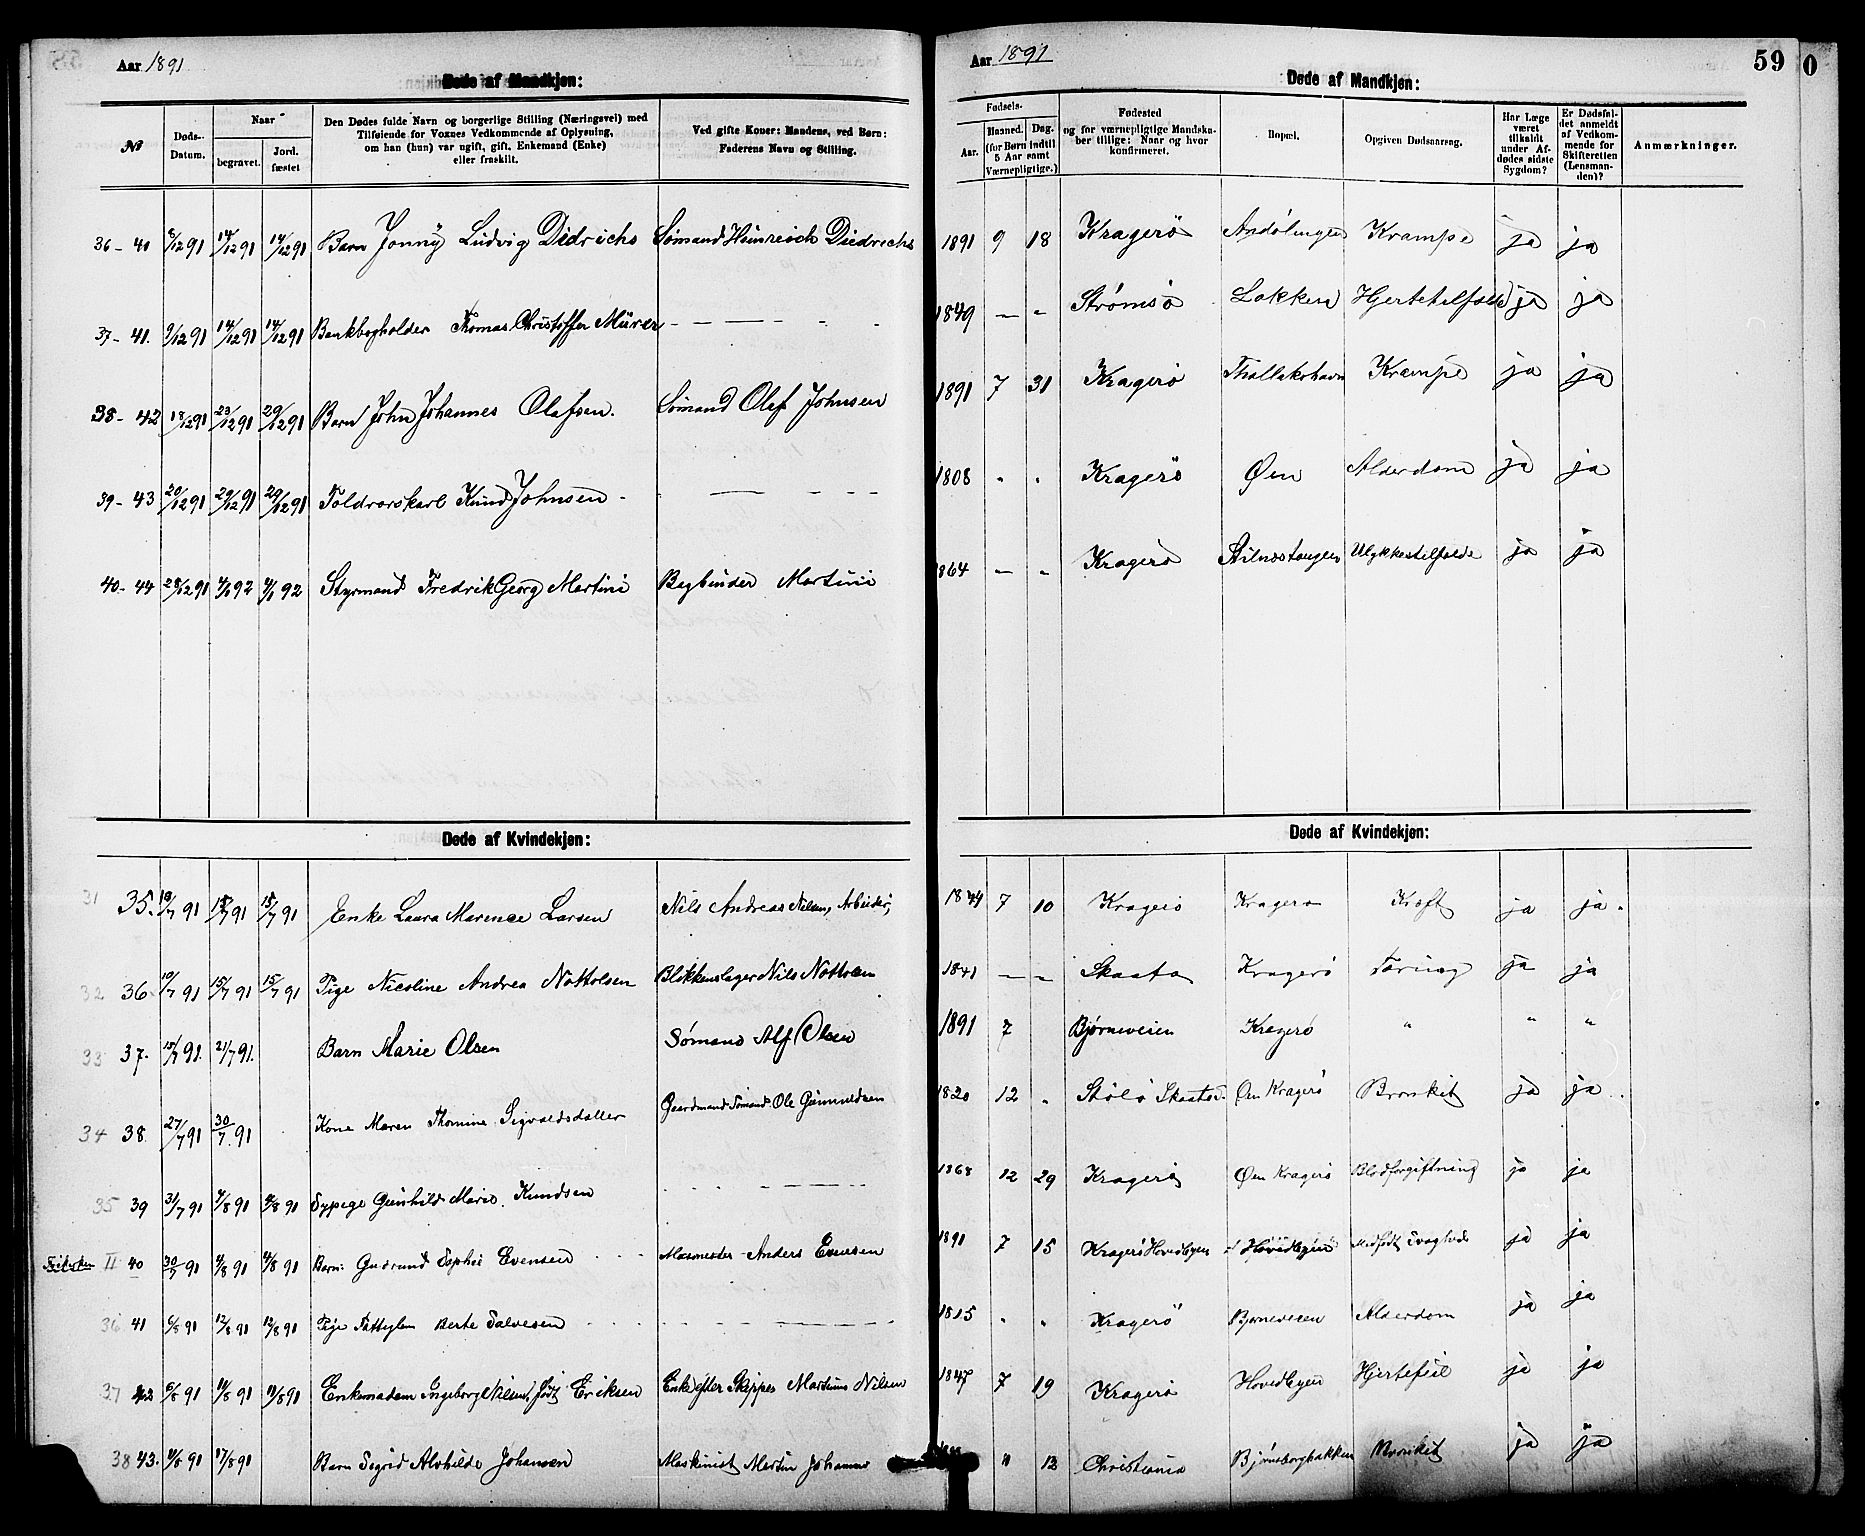 Aar 1891
Døde af Mandkjøn:
№
Døds-Datum.
Naar
begravet.
Jord. fæstet
Den Dødes fulde Navn og borgerlige Stilling (Næringsvei) med
Tilføiende for Voxnes Vedkommende af Oplysning,
om han (hun) var ugift, gift, Enkemand (Enke)
eller fraskilt.
Ved gifte Koner: Mandens, ved Børn:
Faderens Navn og Stilling.
36- 40 8/12 91 14/12 91 14/12 91 Barn Jonny Ludvig Didrichs Sömand Heinreich Diedrichs
37- 41. 9/12 91 14/12 91 14/12 91 Bankbogholder Thomas Christoffer Mürer
38- 42 18/12 91 23/12 91 29/12 91 Barn John Johannes Olafsen. Sömand Olaf Johnsen
39- 43 20/12 91 29/12 91 29/12 91 Toldrorskarl Knud Johnsen
40- 44 28/12 91 4/1 92 4/1 92 Styrmand Fredrik Georg Martini Bogbinder Martini
Døde af Kvindekjøn:
31 35. 10/7 91 15/7 91 15/7 91 Enke Laara Marence Larsen Nils Andreas Nilsen, Arbieder,
32 36 10/7 91 15/7 91 15/7 91 Pige Nicoline Andrea Nottolsen Blikkenslager Nils Nottolsen
33 37. 15/7 91. 21/7 91. Barn Marie Olsen Sømand Alf Olsen
34 38. 27/7 91 30/7. 91 Kone Maren Thomine Sigvaldsdatter Gaardmand Sømand Ole Gunnuldsen
35 39 31/7 91 4/8 91 4/8 91 Sypige Gunhild Marie Knudsen
II 40 30/7 91 4/8 91 4/8 91 Barn Gudrund Sophie Evensen Murmester Anders Evensen
36. 41 6/8 91 12/8 91 12/8 91 Pige Fattiglem Berte Salvesen
37 42 6/8 91 11/8 91 11/8 91 Enkemadam Ingeborg Nilsen, født Eriksen Enke efter Skipper Martinus Nilsen
38 43. 11/8 91 17/8 91 Barn Sigrid Alvhilde Johansen Maskinist Martin Johannes
Aar 1891
59
0
Døde af Mandkjøn:
Fødsels-
Aar. Maaned. Dag.
(for Børn indtil
5 Aar samt
Værnepligtige.)
Fødested
og for værnepligtige Mandska-
ber tillige: Naar og hvor
konfirmeret.
Bopæl.
Opgiven Dødsaarsag.
Har Læge
været
tilkaldt
under Af-
dødes sidste
Sygdom?
Er Dødsfal-
det anmeldt
af Vedkom-
mende for
Skifteretten
(Lensman-
den)?
Anmærkninger.
1891 9 18 Kragerö Andölingen Krampe ja ja
1849 – " Strömsö Lökken Hjertetilfælde ja ja
1891 7 31 Kragerö Thallakshavn Krampe ja ja
1808 " " Kragerö Øen Alderdom ja ja
1864 – " Kragerö Stilnestangen Ulykkestilfælde ja ja
Døde af Kvindekjøn:
1844 7 10 Kragerö Kragerö Kræft ja ja.
1841 – – Skaatø Kragerö Tæring ja ja
1891 7 Bjørneveien Kragerö " " "
1820 12 " Stölö Skaatø. Øen Kragerö Bronkit ja ja
1868 12 29 Kragerö Øen Kragerö Blodforgiftning ja ja
1891 7 15 Kragerö Hovedbyen Hovedbyen Medfødt Svaghed ja ja
1815 " " Kragerö Bjørneveien Alderdom ja ja
1847 7 19 Kragerö Hovedbyen Hjertefeil ja ja
12 Christiania Bjørnsborgbakken Bronkit ja ja